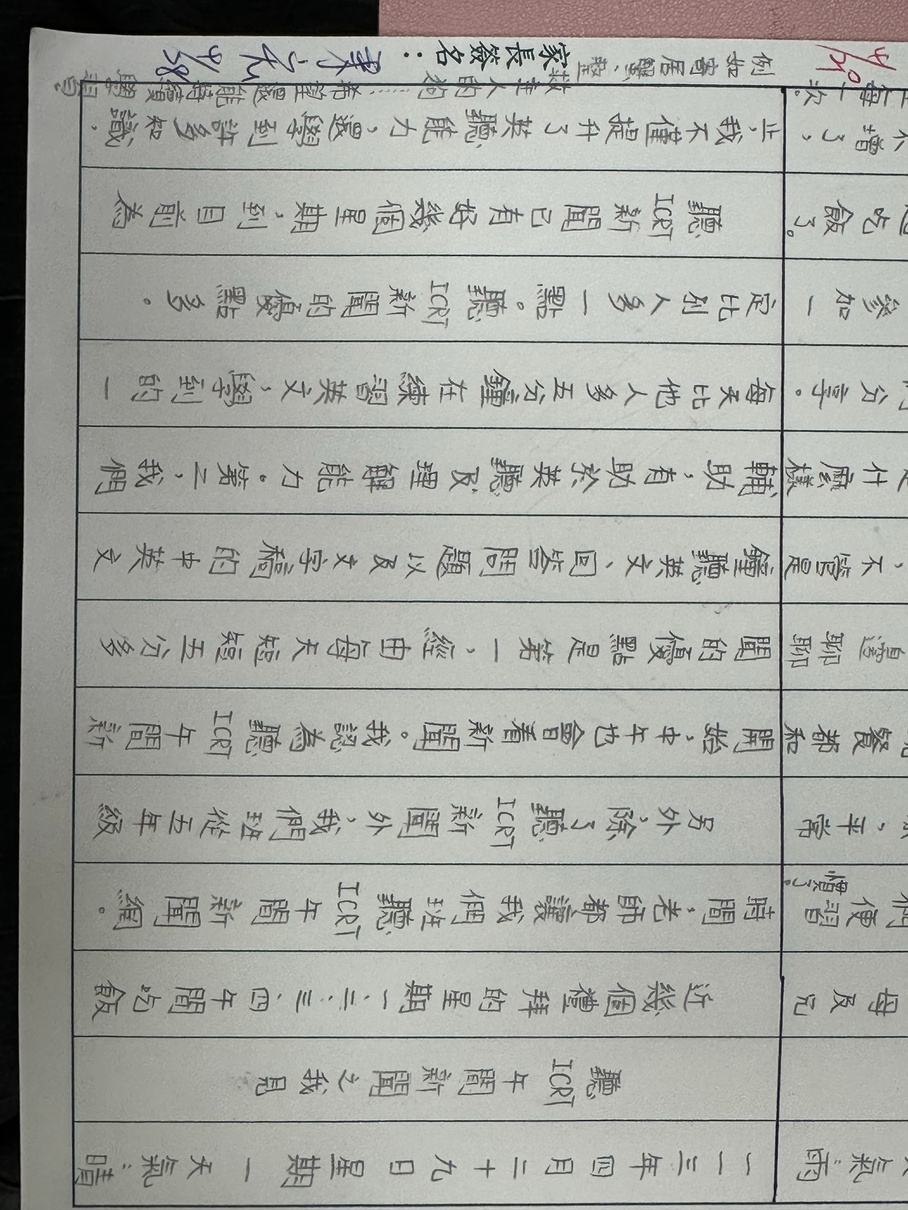 氣:雨
母及兄
們便習慣了。
,平常
餐都和
邊聊
,不管是
什麼樣
分享。
參加一
吃飯了。
不增了,
每一次。
一一三年四月二十九日星期一天氣:晴
聽ICRT午間新聞之我見
近幾個禮拜的星期一、二、三、四午間吃飯
時間,老師都讓我們班聽ICRT午間新聞網。
另外,除了聽ICRT新聞外,我們班從五年級
開始,中午也會看新聞。我認為聽ICRT午間新
聞的優點是第一,經由每天短短五分多
鐘聽英文、回答問題以及文字稿的中英文
輔助,有助於英聽及理解能力。第二,我們
每天比他人多五分鐘在練習英文,學到的一
定比別人多一點。聽ICRT新聞的優點多
聽ICRT新聞已有好幾個星期,到目前為
止,我不僅提升了英聽能力,還學到許多知識,
例如寄居蟹、
救主人的狗......希望還能持續學習
家長簽名: